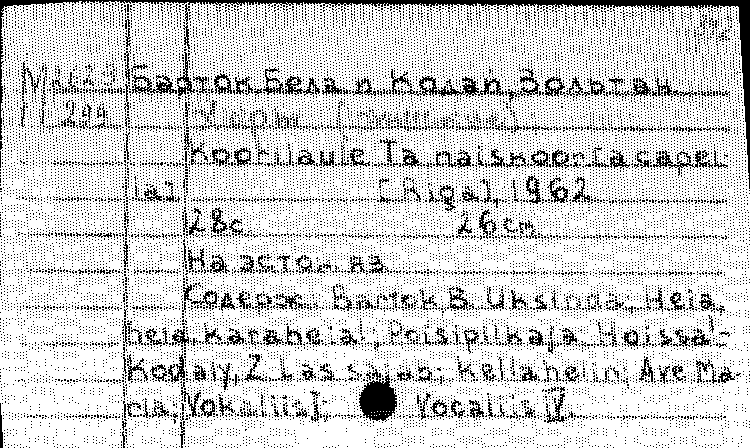 Барток, Бела и Кодаи, Зольтан
299 Хоры
Koorilaule Ta naiskoor[acapel-
la] [Riga], 1962
28c 26cm
На эстон. яз.
Содерж. Bartok, B. Üksinda, Heia,
heia, karaheia!; Poisipilkaja, Hoissa!-
Kodaly, Z. Las sajab; Kellahelin; Ave Ma-
ria; Vokaliis I; Vocaliis IV.